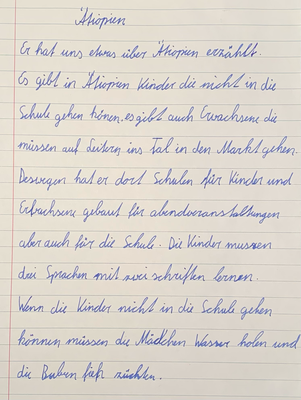 Ätiopien
Er hat uns etwas über Ätiopien erzählt.
Es gibt in Ätiopien Kinder die nicht in die
Schule gehen könen, es gibt auch Erwachsene die
müssen auf Leitern ins Tal in den Markt gehen.
Deswegen hat er dort Schulen für Kinder und
Erwachsene gebaut für abendveranstaltungen
aber auch für die Schule. Die Kinder mussen
drei Sprachen mit zwei schriften lernen.
Wenn die Kinder nicht in die Schule gehen
können müssen die Mädchen Wasser holen und
die Buben züchten.